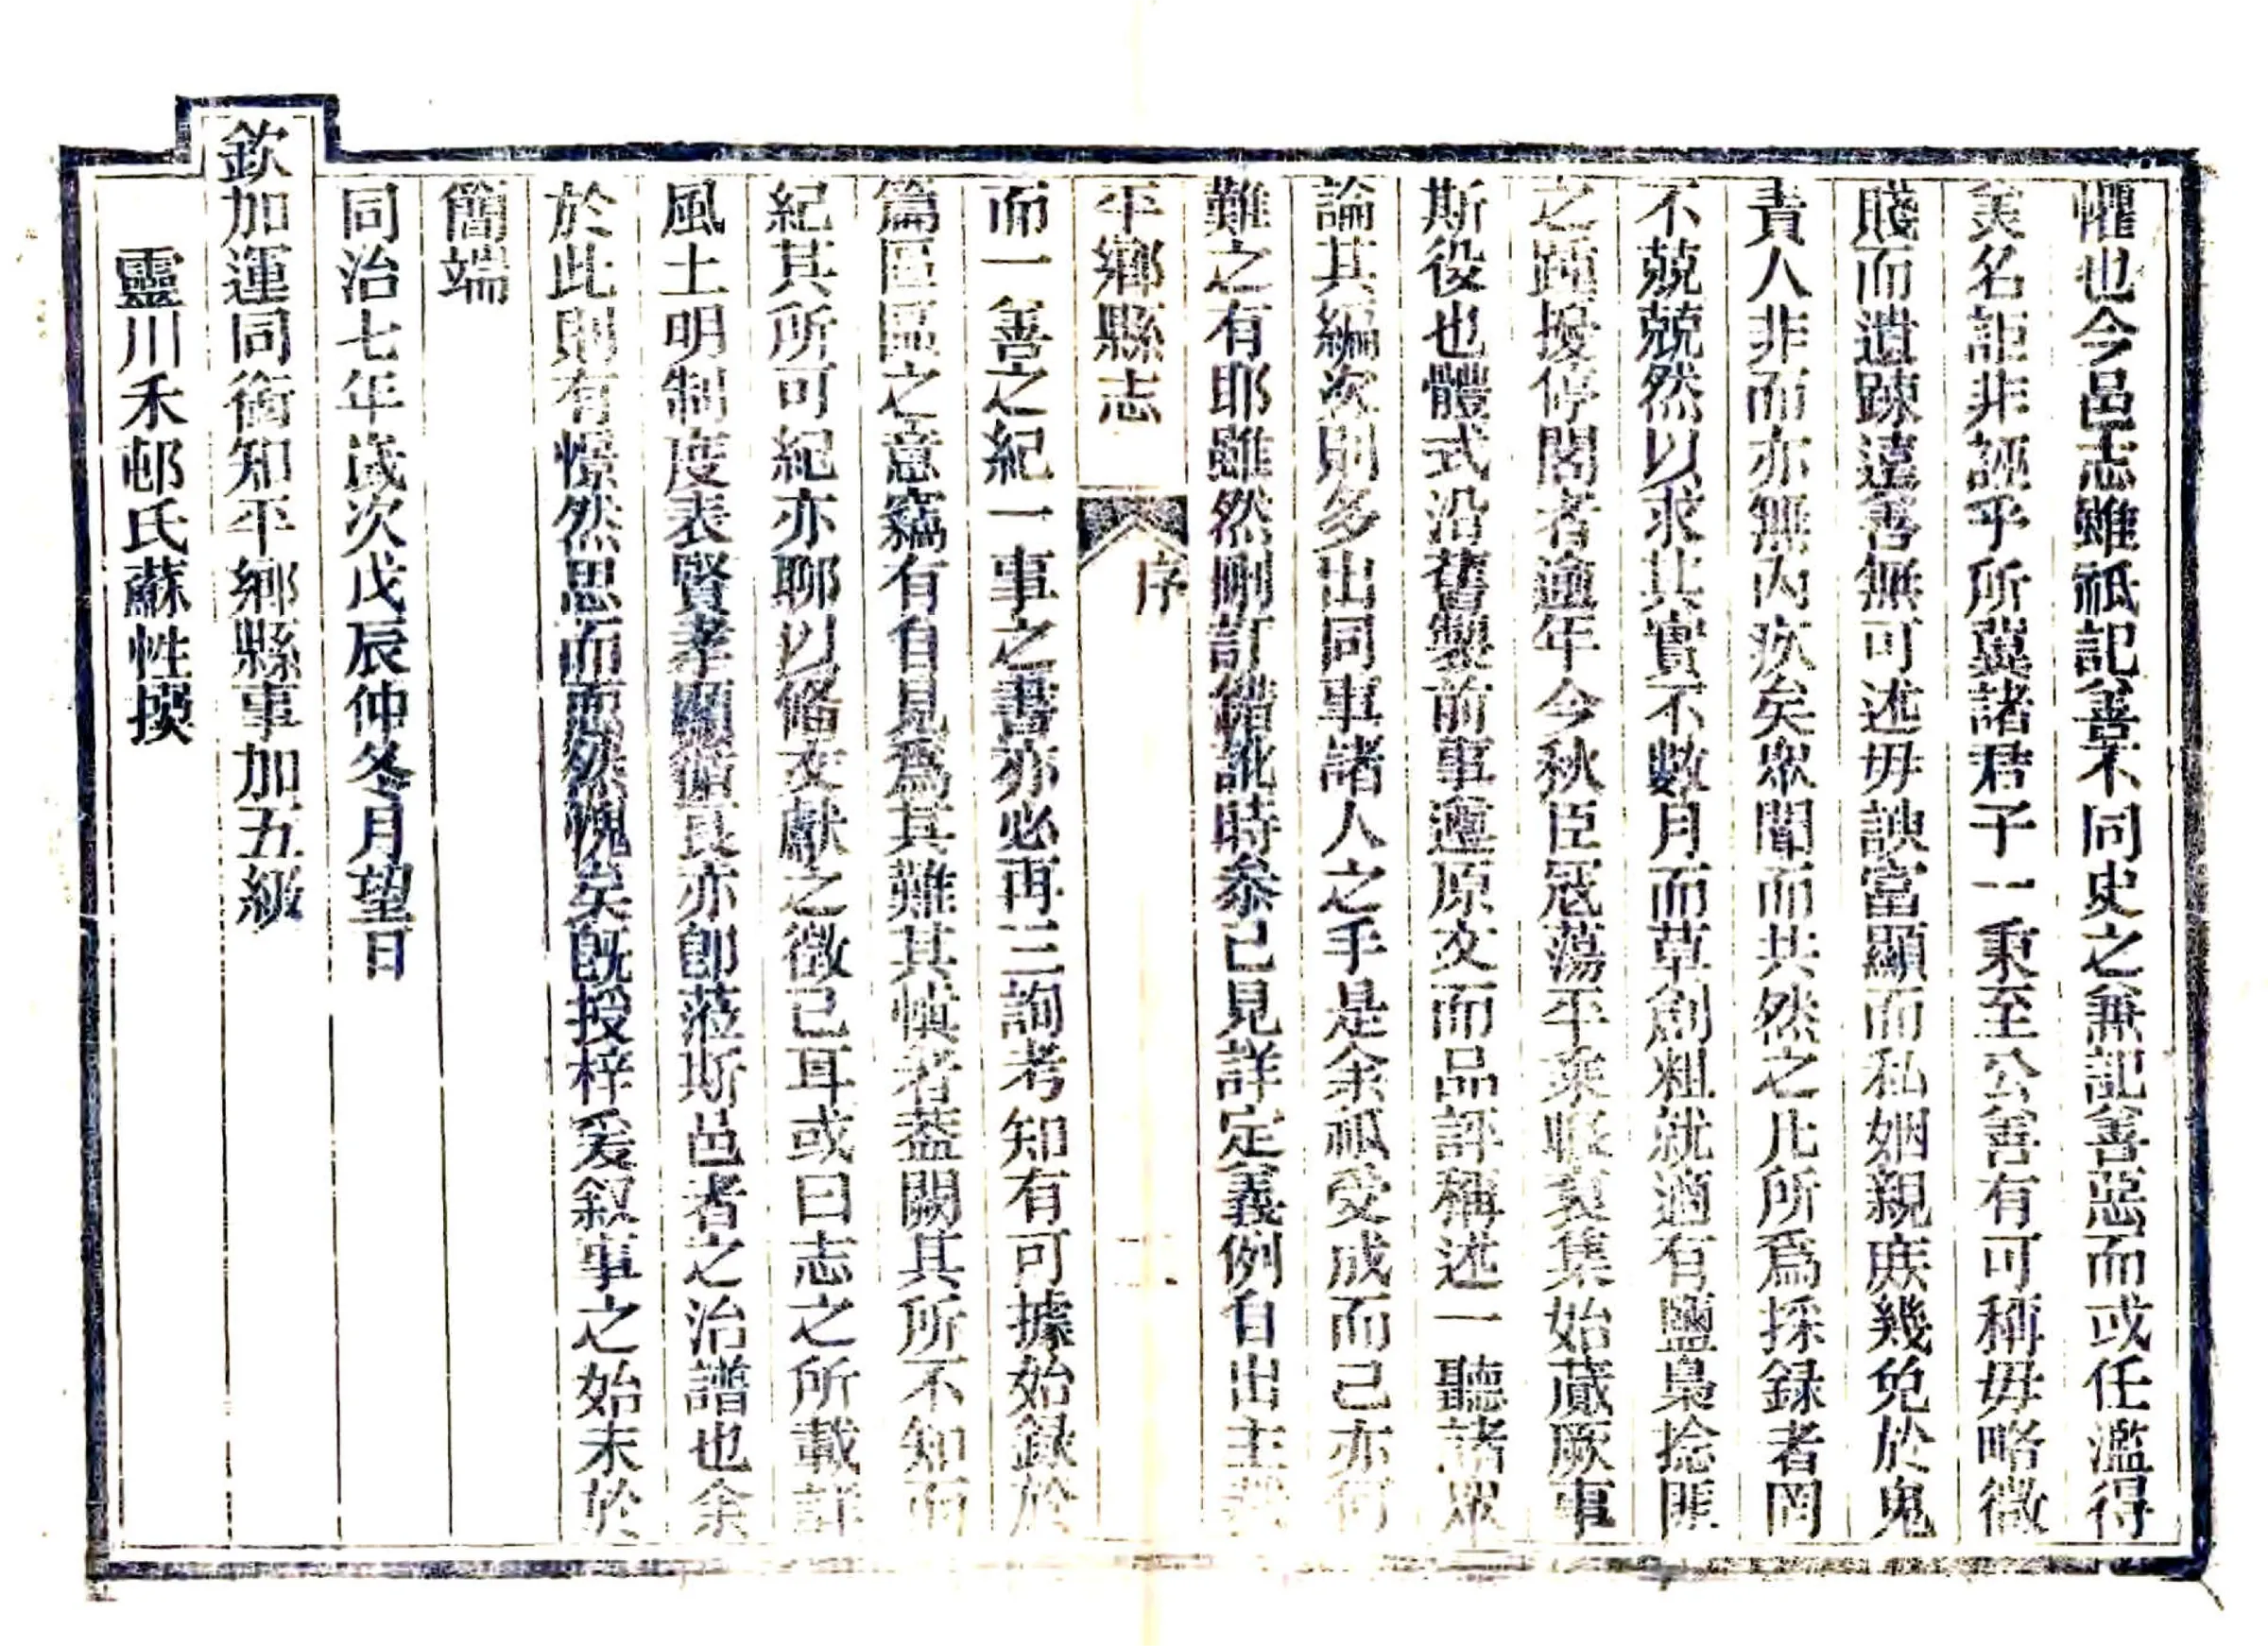 懼也今邑志雖祗記善不同史之兼記善惡而或任濫得
羙名詎非誣乎所冀諸君子一秉至公善有可稱毋略微
賤而遺踈遠善無可述毋諛富顯而私姻親庻幾免於鬼
責人非而亦無內疚矣眾聞而共然之凡所爲採録者罔
不兢兢然以求其實不數月而草創粗就適有鹽梟捻匪
之蹱擾停閣者逾年今秋臣冦蕩平乘暇裒集始蕆厥事
斯役也體式沿舊製前事遵原文而品評稱述一聽諸眾
論其編次則多出同事諸人之手是余祗受成而已亦何
難之有耶雖然刪訂錯訛時叅己見詳定義例自出主
平鄉縣志 序 二
而一善之紀一事之書亦必再三詢考知有可據始録於
篇區區之意竊有自見爲其難其慎者葢闕其所不知而
紀其所可紀亦聊以俻文獻之徵已耳或曰志之所載詳
風土明制度表賢孝顯循良亦卽蒞斯邑者之治譜也余
於此則有憬然思而恧然愧矣旣授梓爰叙事之始末於
簡端
同治七年歲次戊辰仲冬月望日
欽加運同銜知平鄉縣事加五級
靈川禾邨氏蘇性撰